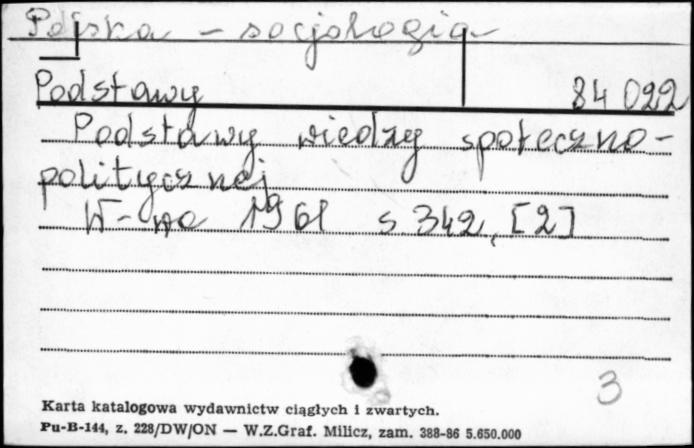 Polska - socjologia
Podstawy 84 022
Podstawy wiedzy społeczno-
politycznej
W-wa 1961 s 342, [2]
3
Karta katalogowa wydawnictw ciągłych i zwartych.
Pu-B-144, z. 228/DW/ON — W.Z.Graf. Milicz, zam. 388-86 5.650.000